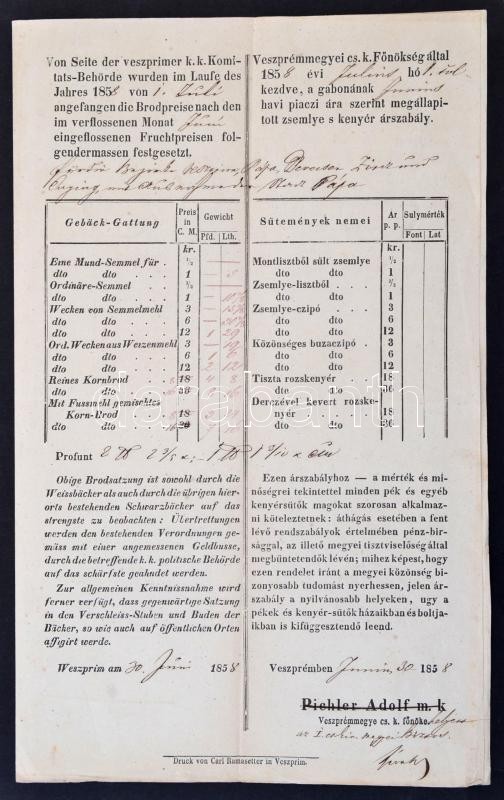 Von Seite der veszprimer k. k. Komi-
tats-Behörde wurden im Laufe des
Jahres 1858 von 1. Juli
angefangen die Brodpreise nach den
im verflossenen Monat Juni
eingeflossenen Fruchtpreisen fol-
gendermassen festgesetzt.
Veszprémmegyei cs. k. Főnökség által
1858 évi Julius hó 1.
kezdve, a gabonának Junius
havi piaczi ára szerint megállapi-
tott zsemlye s kenyér árszabály.
Pápa, Devecser, Zircz und
der Stadt Pápa
Gebäck-Gattung
Preis in C. M.
Gewicht
Pfd. Lth.
kr.
Eine Mund-Semmel für . ½
dto dto . . . 1
Ordinäre-Semmel . . . ½
dto dto . . . 1
Wecken von Semmelmehl 3
dto dto . . . 6
dto dto . . . 12
Ord. Wecken aus Weizenmehl 3
dto dto . . . 6
dto dto . . . 12
Reines Kornbrod . . 18
dto dto . . . 36
Mit Fussmehl gemischtes
Korn-Brod . . . 18
dto dto . . .
Sütemények nemei
Ár p. p.
Sulymérték
Font Lat
kr.
Montlisztből sült zsemlye ½
dto dto 1
Zsemlye-lisztből . . . ½
dto dto 1
Zsemlye-czipó . . . 3
dto dto 6
dto dto 12
Közönséges buzaczipó . . 3
dto dto 6
dto dto 12
Tiszta rozskenyér . . 18
dto dto 36
Derczével kevert rozske-
nyér . . . 18
dto dto 36
Profunt
Obige Brodsatzung ist sowohl durch die
Weissbäcker als auch durch die übrigen hier-
orts bestehenden Schwarzbäcker auf das
strengste zu beobachten: Übertrettungen
werden den bestehenden Verordnungen ge-
mäss mit einer angemessenen Geldbusse,
durch die betreffende k. k. politische Behörde
auf das schärfste geahndet werden.
Zur allgemeinen Kenntnissnahme wird
ferner verfügt, dass gegenwärtige Satzung
in den Verschleiss-Stuben und Buden der
Bäcker, so wie auch auf öffentlichen Orten
affigirt werde.
Weszprim am 30. Juni 1858
Ezen árszabályhoz — a mérték és mi-
nőségrei tekintettel minden pék és egyéb
kenyérsütők magokat szorosan alkalmaz-
ni köteleztetnek: áthágás esetében a fent
lévő rendszabályok értelmében pénz-bir-
sággal, az illető megyei tisztviselőség által
megbüntetendők lévén; mihez képest, hogy
ezen rendelet iránt a megyei közönség bi-
zonyosabb tudomást nyerhessen, jelen ár-
szabály a nyilvánosabb helyeken, ugy a
pékek és kenyér-sütők házaikban és boltja-
ikban is kifüggesztendő leend.
Veszprémben Junius 30 1858
Pichler Adolf m. k
Veszprémmegye cs. k. főnöke.
Druck von Carl Ramasetter in Veszprim.
darabanth